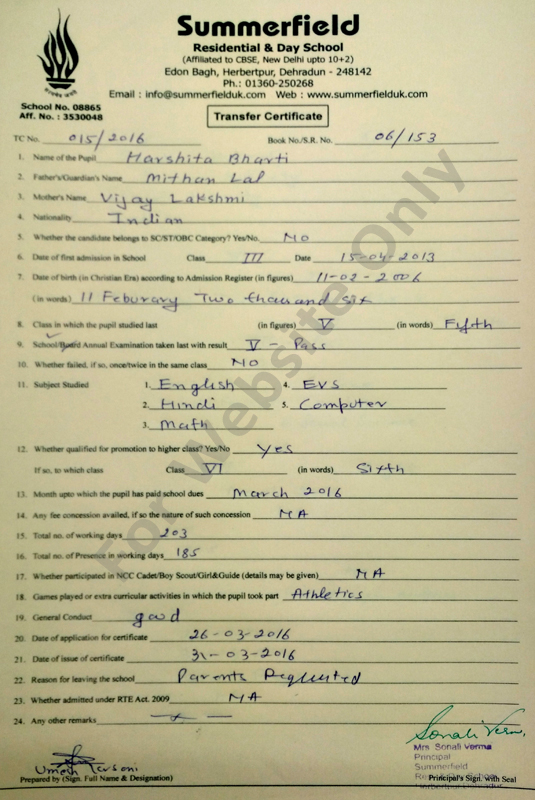 Summerfield
Residential & Day School
(Affiliated to CBSE, New Delhi upto 10+2)
Edon Bagh, Herbertpur, Dehradun - 248142
Ph.: 01360-250268
Email : info@summerfielduk.com Web : www.summerfielduk.com
School No. 08865
Aff. No. : 3530048
Transfer Certificate
TC No. 015/2016 Book No./S.R. No. 06/153
1. Name of the Pupil Harshita Bharti
2. Father's/Guardian's Name Mithan Lal
3. Mother's Name Vijay Lakshmi
4. Nationality Indian
5. Whether the candidate belongs to SC/ST/OBC Category? Yes/No. No
6. Date of first admission in School Class III Date 15-04-2013
7. Date of birth (in Christian Era) according to Admission Register (in figures) 11-02-2006
(in words) 11 Feburary Two thousand Six
8. Class in which the pupil studied last (in figures) V (in words) Fifth
9. School/Board Annual Examination taken last with result V - Pass
10. Whether failed, if so, once/twice in the same class No
11. Subject Studied 1. English 4. EVS
2. Hindi 5. Computer
3. Math
12. Whether qualified for promotion to higher class? Yes/No Yes
If so, to which class Class VI (in words) Sixth
13. Month upto which the pupil has paid school dues March 2016
14. Any fee concession availed, if so the nature of such concession NA
15. Total no. of working days 203
16. Total no. of Presence in working days 185
17. Whether participated in NCC Cadet/Boy Scout/Girl&Guide (details may be given) NA
18. Games played or extra curricular activities in which the pupil took part Athletics
19. General Conduct good
20. Date of application for certificate 26-03-2016
21. Date of issue of certificate 31-03-2016
22. Reason for leaving the school Parents Requested
23. Whether admitted under RTE Act. 2009 NA
24. Any other remarks
Sonali Verma
Mrs Sonali Verma
Principal
Summerfield
Umesh
Prepared by (Sign. Full Name & Designation) Principal's Sign. with Seal
For Website Only